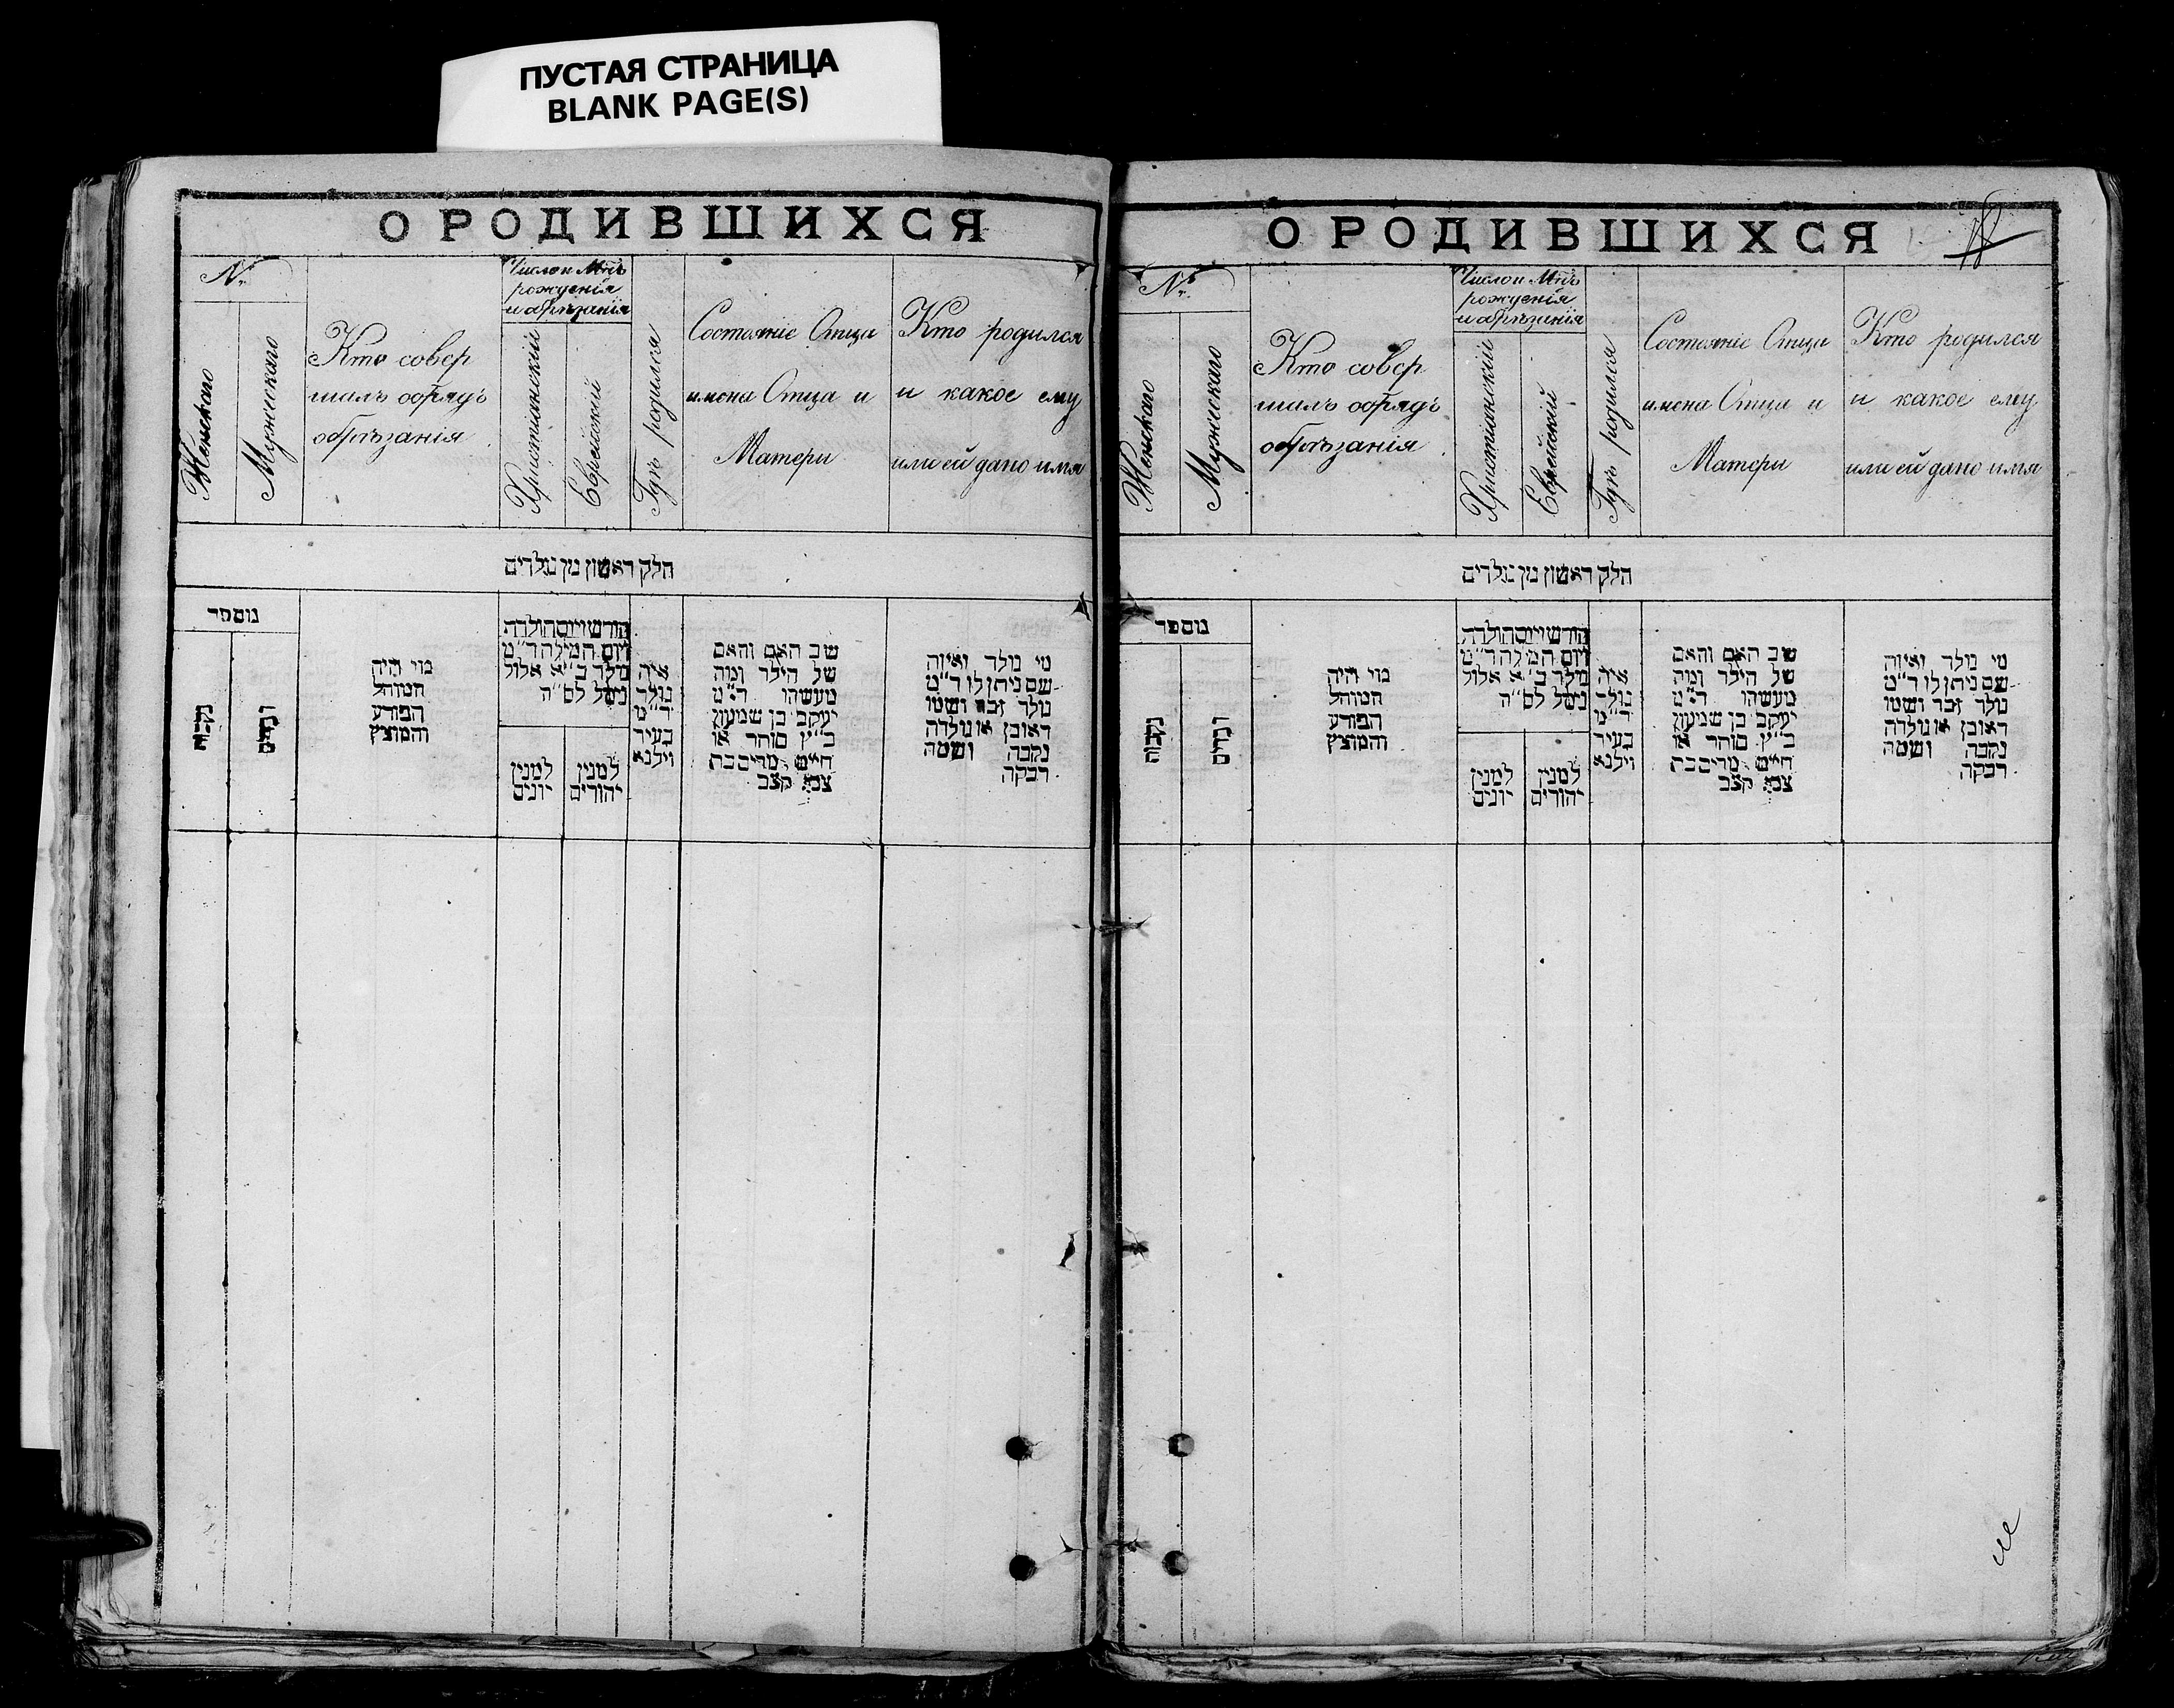 ПУСТАЯ СТРАНИЦА
BLANK PAGE(S)
О РОДИВШИХСЯ
№
Женскаго
Мужескаго
Кто совер
шалъ обрядъ
обрѣзанія
Число и Мѣ̃ъ
рожденія
и обрѣзанія
Христіанскій
Еврейскій
Гдѣ родился
Состояніе Отца
имена Отца и
Матери
Кто родился
и какое ему
или ей дано имя
חלק ראשון מן נולדים
מספר
נקבות
זכרים
מי היה
המוהל
הפורע
והמוצץ
חודש ויום הולדת
ויום המילה ד״מ
נולד ב׳״א אלול
נימל לס״ה
למנין
יונים
למנין
יהודים
איה
נולד
ד״מ
בעיר
וילנא
שב האם והאם
של הילד ומה
מעשהו ד״מ
יעקב בן שמעון
כ״ץ סוחר או
חי״ש מרים בת
צבי קצב
מי נולד ואיזה
שם ניתן לו ד״מ
נולד זכר ושמו
ראובן או נולדה
נקבה ושמה
רבקה
О РОДИВШИХСЯ
№
Женскаго
Мужескаго
Кто совер
шалъ обрядъ
обрѣзанія
Число и Мѣ̃ъ
рожденія
и обрѣзанія
Христіанскій
Еврейскій
Гдѣ родился
Состояніе Отца
имена Отца и
Матери
Кто родился
и какое ему
или ей дано имя
חלק ראשון מן נולדים
מספר
נקבות
זכרים
מי היה
המוהל
הפורע
והמוצץ
חודש ויום הולדת
ויום המילה ד״מ
נולד ב׳״א אלול
נימל לס״ה
למנין
יונים
למנין
יהודים
איה
נולד
ד״מ
בעיר
וילנא
שב האם והאם
של הילד ומה
מעשהו ד״מ
יעקב בן שמעון
כ״ץ סוחר או
חי״ש מרים בת
צבי קצב
מי נולד ואיזה
שם ניתן לו ד״מ
נולד זכר ושמו
ראובן או נולדה
נקבה ושמה
רבקה